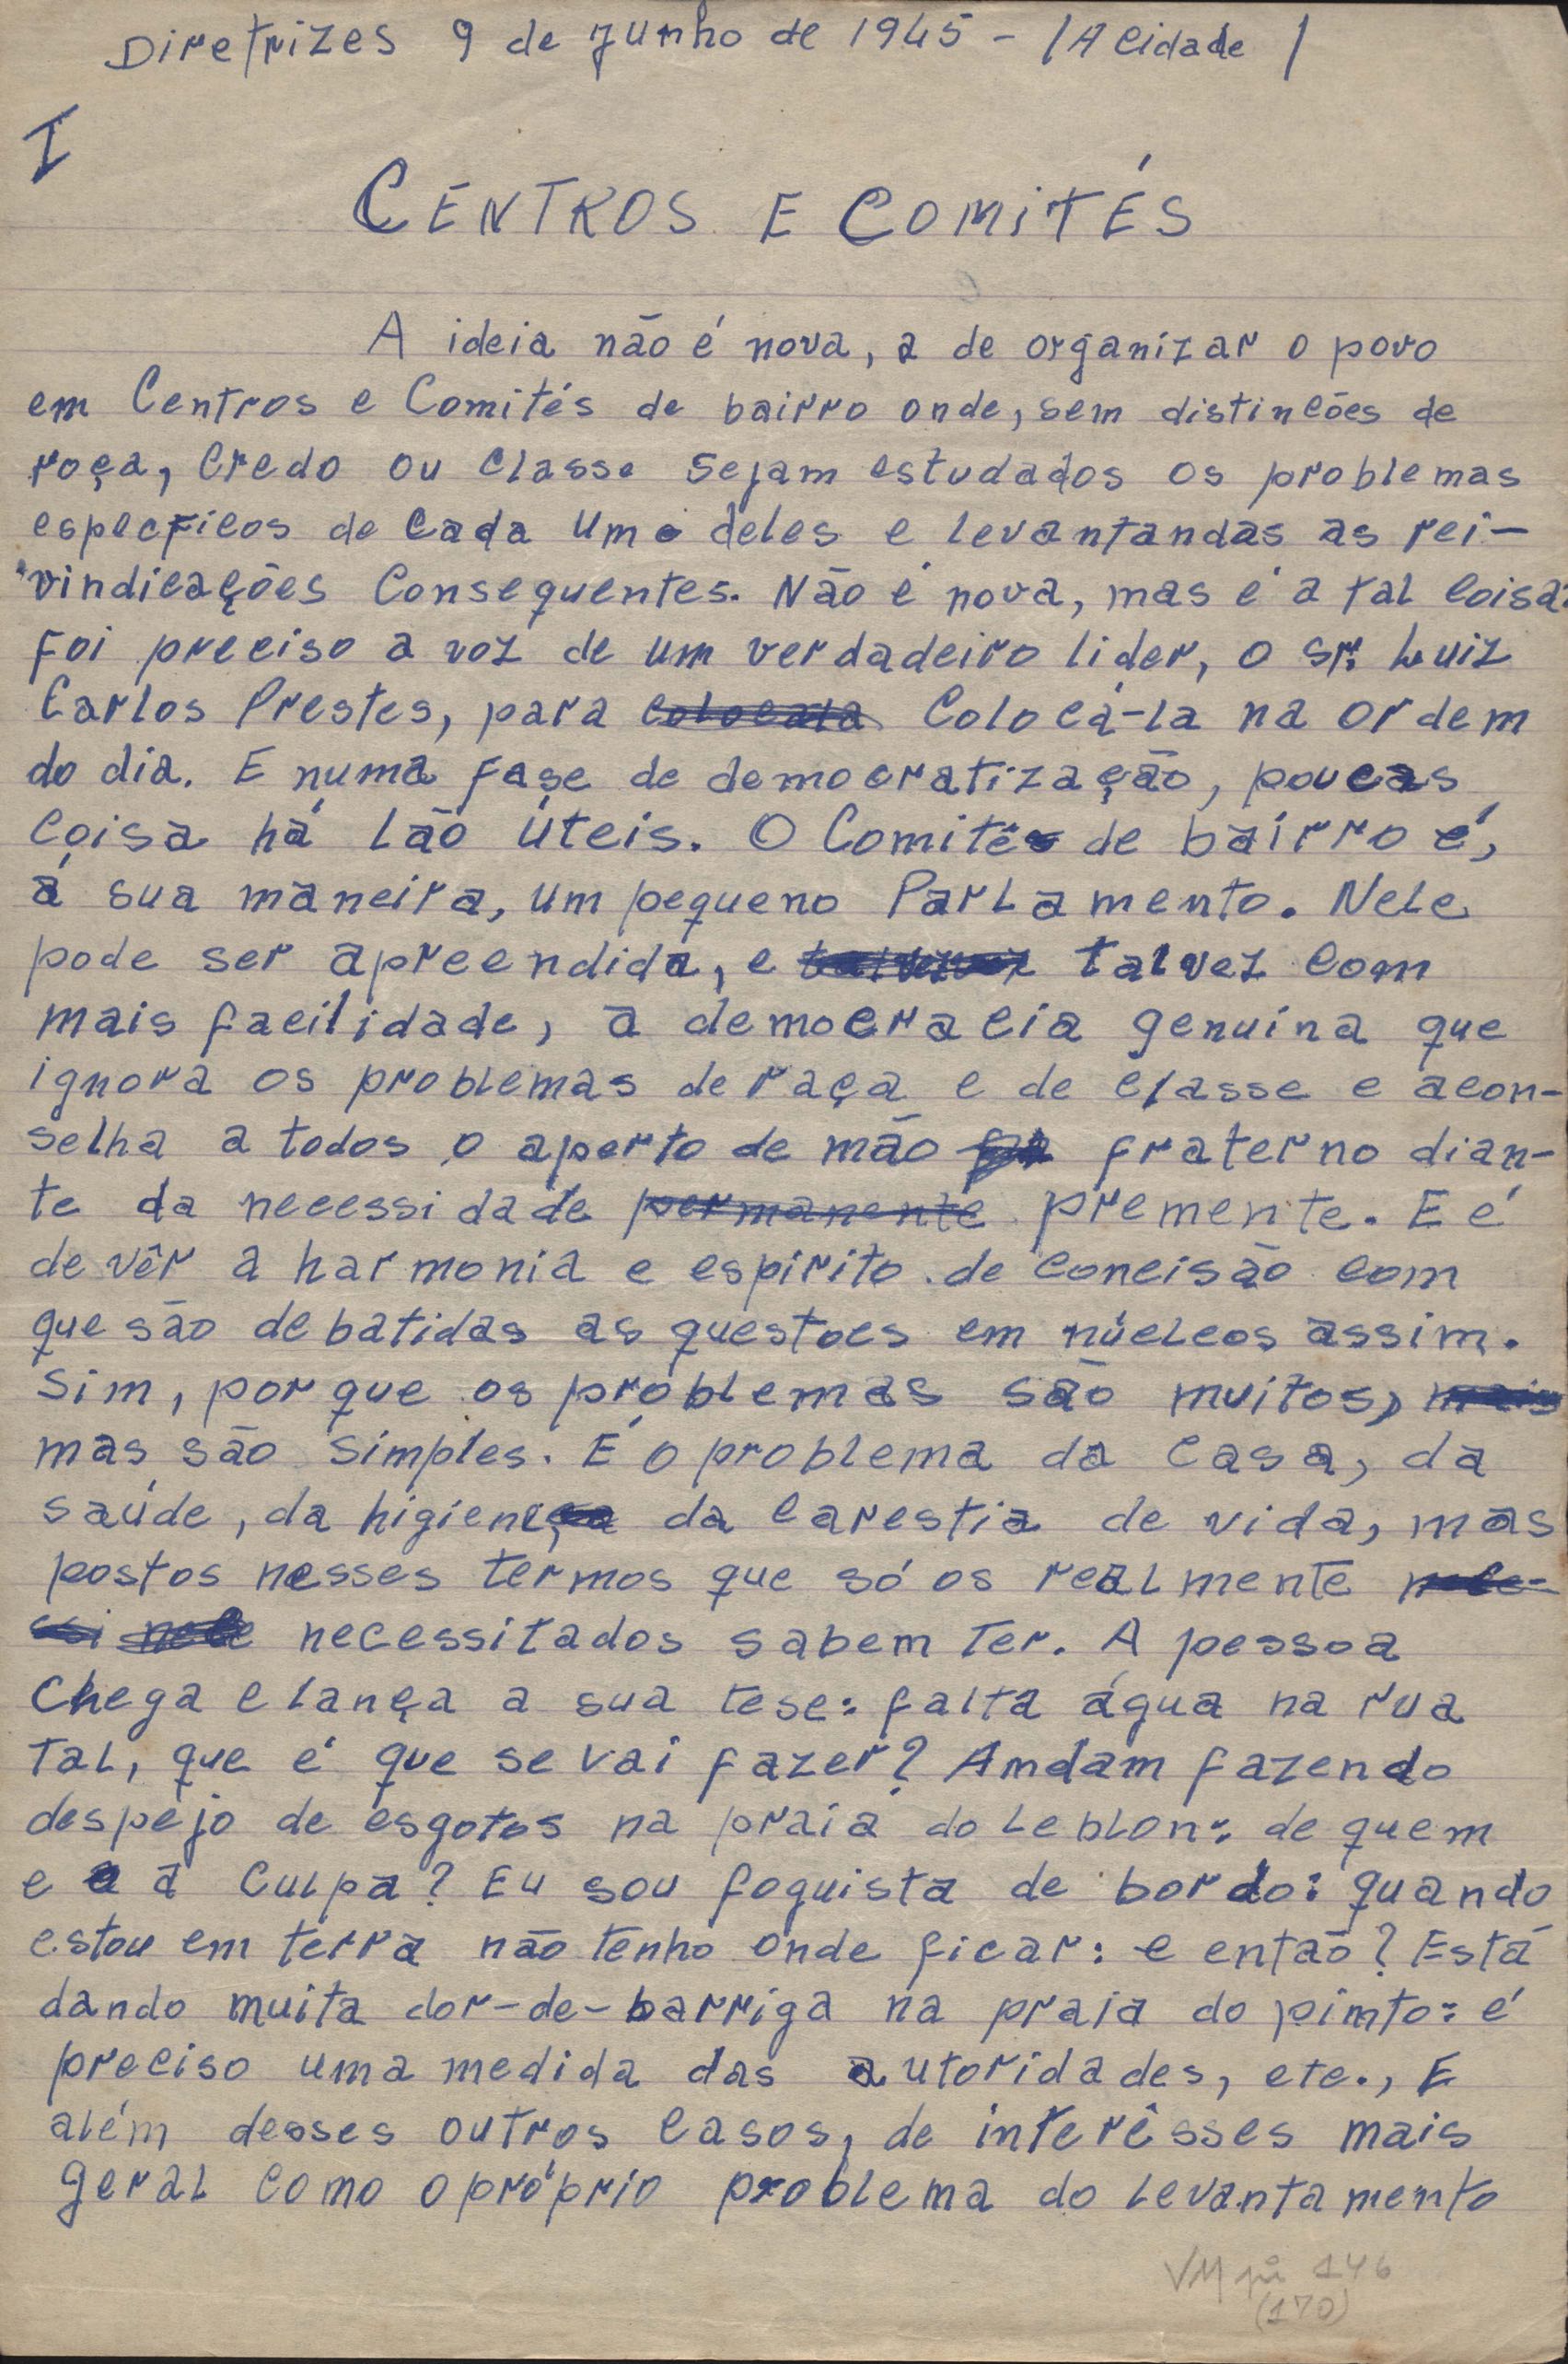 Diretrizes 9 de junho de 1945 - / A cidade /
I
CENTROS E COMITÉS
A ideia não é nova, a de organizar o povo
em Centros e Comités de bairro onde, sem distincões de
roça, credo ou classe sejam estudados os problemas
especficos de cada um deles e levantandas as rei-
vindicações consequentes. Não é nova, mas é a tal coisa:
foi preciso a voz de um verdadeiro lider, o sr. Luiz
Carlos Prestes, para colocala colocá-la na ordem
do dia. E numa fase de democratização, poucas
coisa há lão úteis. O Comitê de bairro é,
á sua maneira, um pequeno Parlamento. Nele
pode ser apreendida, e talvez com
mais facilidade, a democracia genuina que
ignora os problemas de raça e de classe e acon-
selha a todos o aperto de mão fraterno dian-
te da necessidade permanente premente. E é
de vêr a harmonia e espirito de concisão com
que são debatidas as questoes em núcleos assim.
Sim, porque os problemas são muitos, mais
mas são simples. É o problema da casa, da
saúde, da higiene, da carestia de vida, mas
postos nesses termos que só os realmente
necessitados sabem ter. A pessoa
chega e lança a sua tese: falta água na rua
tal, que é que se vai fazer? Amdam fazendo
despejo de esgotos na praia do Leblon: de quem
e a culpa? Eu sou foguista de bordo: quando
estou em terra não tenho onde ficar: e então? Está
dando muita dor-de-barriga na praia do pimto: é
preciso uma medida das autoridades, etc., E
além desses outros casos, de interêsses mais
geral como o próprio problema do levantamento
VM pi 146
(170)